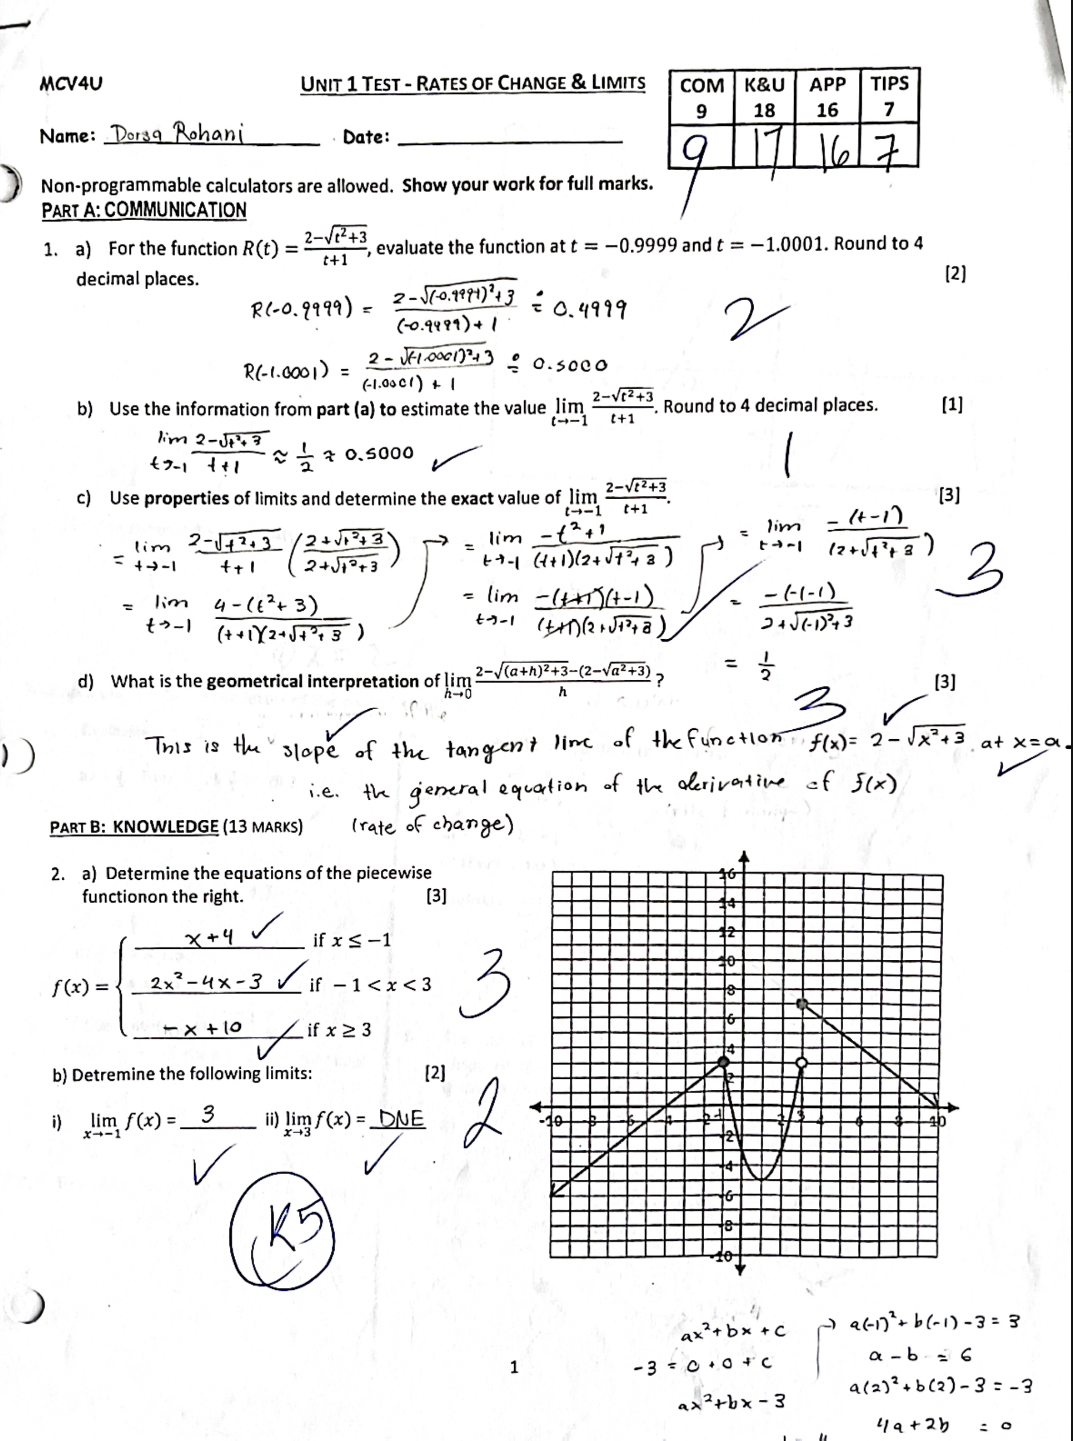 MCV4U UNIT 1 TEST - RATES OF CHANGE & LIMITS
COM K&U APP TIPS
9 18 16 7
9 17 16 7
Name: Dorsa Rohani Date:
Non-programmable calculators are allowed. Show your work for full marks.
PART A: COMMUNICATION
1. a) For the function R(t) = (2-√(t²+3))/(t+1), evaluate the function at t = -0.9999 and t = -1.0001. Round to 4
decimal places. [2]
R(-0.9999) = (2-√((-0.9999)²+3))/((-0.9999)+1) ≑ 0.4999
2
R(-1.0001) = (2-√((-1.0001)²+3))/((-1.0001)+1) ≑ 0.5000
b) Use the information from part (a) to estimate the value lim t→-1 (2-√(t²+3))/(t+1). Round to 4 decimal places. [1]
lim t→-1 (2-√(t²+3))/(t+1) ≈ 1/2 ≈ 0.5000 ✓ 1
c) Use properties of limits and determine the exact value of lim t→-1 (2-√(t²+3))/(t+1). [3]
= lim t→-1 (2-√(t²+3))/(t+1) ((2+√(t²+3))/(2+√(t²+3)))
= lim t→-1 (4-(t²+3))/((t+1)(2+√(t²+3)))
= lim t→-1 (-t²+1)/((t+1)(2+√(t²+3)))
= lim t→-1 (-(t+1)(t-1))/((t+1)(2+√(t²+3)))
= lim t→-1 (-(t-1))/((2+√(t²+3)))
= (-(-1-1))/(2+√((-1)²+3))
= 1/2
3
d) What is the geometrical interpretation of lim h→0 (2-√((a+h)²+3)-(2-√(a²+3)))/h ? [3]
3
This is the slope of the tangent line of the function f(x)= 2-√(x²+3) at x=a.
i.e. the general equation of the derivative of f(x)
(rate of change)
PART B: KNOWLEDGE (13 MARKS)
2. a) Determine the equations of the piecewise
functionon the right. [3]
x+4 ✓ if x ≤ -1
f(x) = { 2x²-4x-3 ✓ if -1 < x < 3
-x+10 ✓ if x ≥ 3
3
b) Detremine the following limits: [2]
i) lim x→-1 f(x) = 3 ii) lim x→3 f(x) = DNE
2
K5
16
14
12
10
8
6
4
2
-10 -8 -6 -4 -2 -1 2 3 4 6 8 10
-2
-4
-6
-8
-10
1
ax²+bx+c
-3 = 0+0+c
ax²+bx-3
a(-1)²+b(-1)-3=3
a-b = 6
a(2)²+b(2)-3=-3
4a+2b = 0